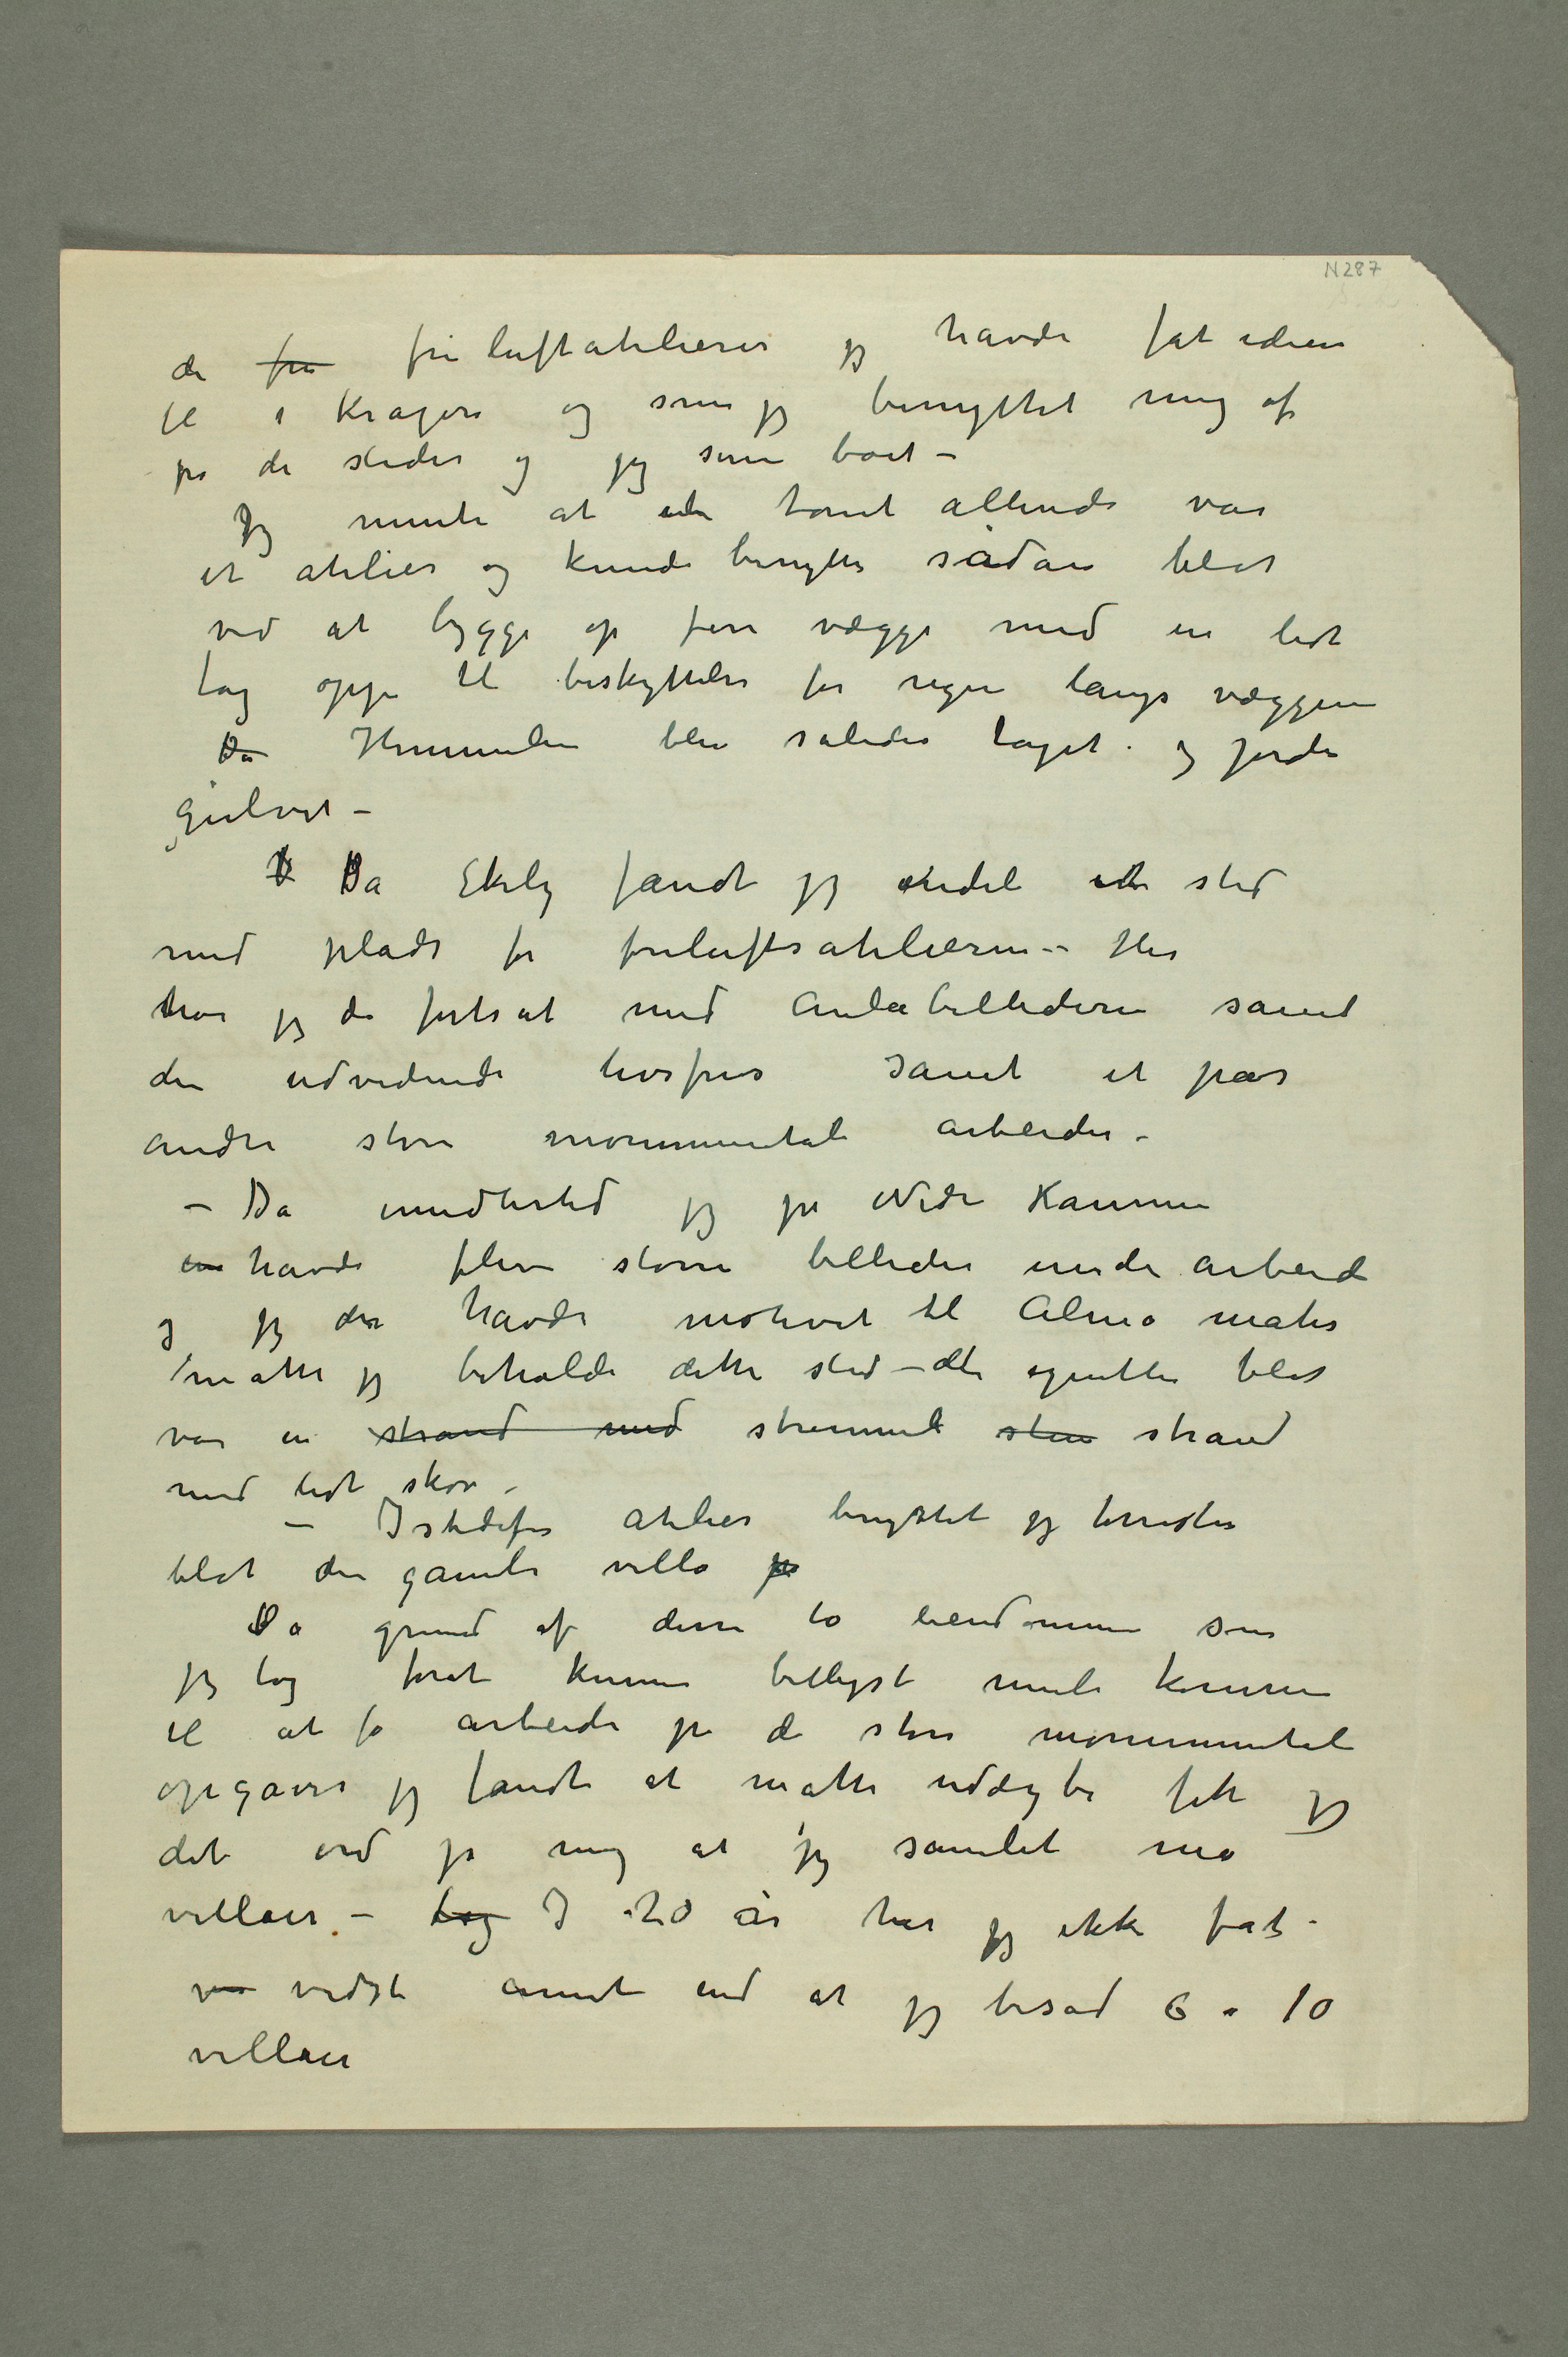 N287
de fri friluftatelierer jeg havde fåt ideen
til i Kragerø og som jeg benyttet mig af
på de steder og jeg siden boet –
Jeg mente at en tomt allerede var
et atelier og kunde benyttes sådan blot
ved at bygge op fire vægge med en lidt
tag oppe til beskyttelse for regn langs væggene
Da Himmelen blev således taget og jorden
gulvet –
På Ekely fandt jeg endel et sted
med plads for friluftsatelierne – Her
har jeg da fortsat med Aulabillederne samt
den udvidende livsfris samt et par
andre store monumentale arbeider –
– Da imidlertid jeg på Nedre Ramme
en havde flere større billeder under arbeide
og jeg der havde motivet til Alma mater
måtte jeg beholde dette sted – der egentlig blot
var en strand med strimmel sten strand
med lidt skov –
– Istedetfor atelier benyttet jeg forresten
blot den gamle villa på
På grund af disse to eiendomme som
jeg tog forat kunne billigst mulig komme
til at få arbeide på de store monumentale
opgaver jeg fandt at måtte uddybe fik jeg
det ord på mig at jeg samlet på
villaer – tog I 20 år har jeg ikke fåt
vidste annet end at jeg besad 6 a 10
villaer